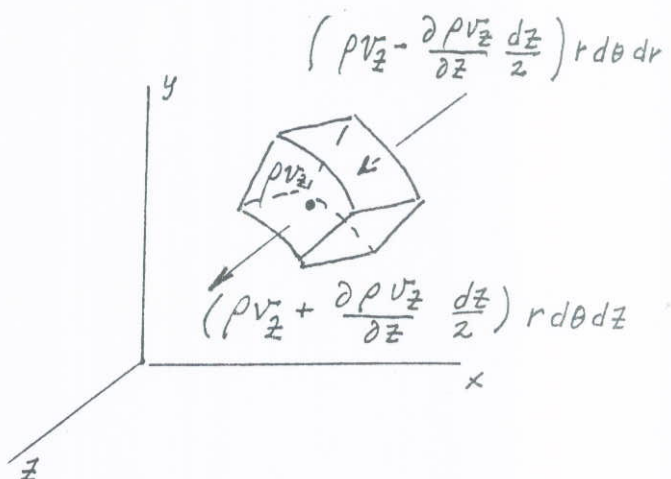 (ρv_z - ∂ρv_z/∂z dz/2) r dθ dr
y
ρv_z
(ρv_z + ∂ρv_z/∂z dz/2) r dθ dz
x
z